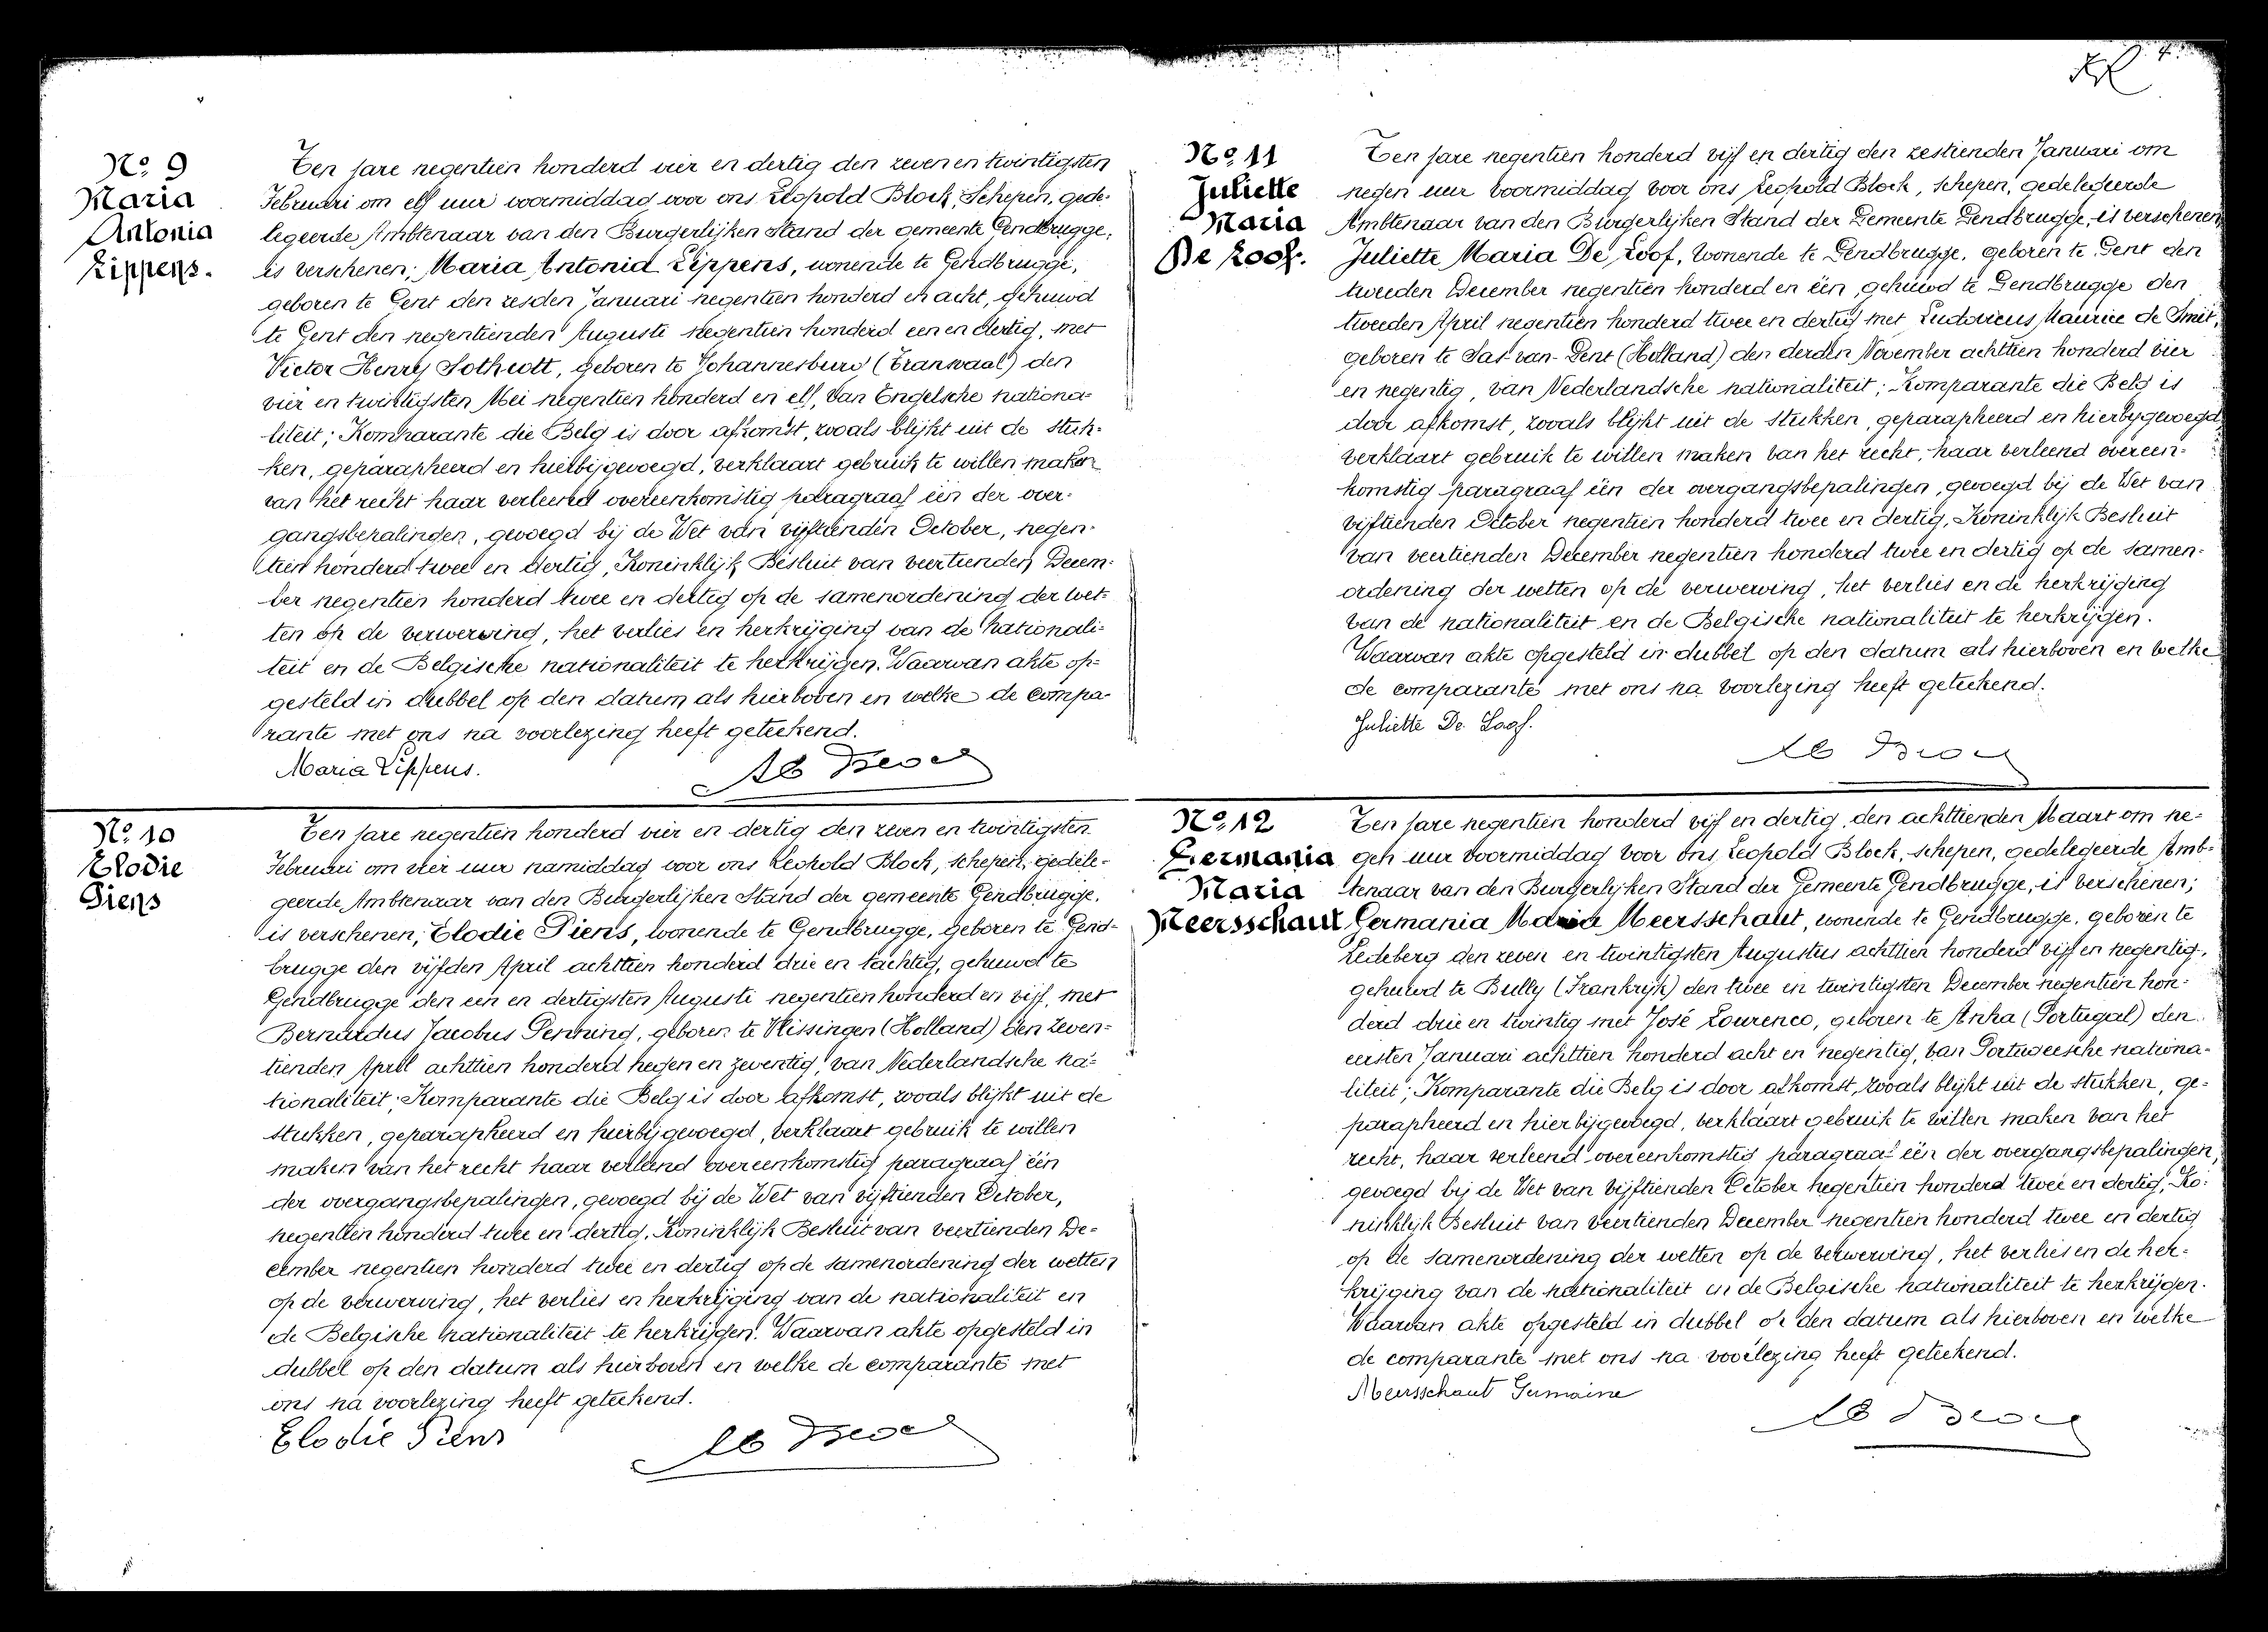 4
N° 9
Maria
Antonia
Lippens.
Ten jare negentien honderd vier en dertig den zeven en twintigsten
Februari om elf uur voormiddag voor ons Leopold Block, Schepen, gede-
legeerde Ambtenaar van den Burgerlijken Stand der gemeente Gendbrugge,
is verschenen; Maria Antonia Lippens, wonende te Gendbrugge,
geboren te Gent den zesden Januari negentien honderd en acht, gehuwd
te Gent den negentienden Augusti negentien honderd een en dertig, met
Victor Henry Sothcott, geboren te Johannesburg (Transvaal) den
vier en twintigsten Mei negentien honderd en elf, van Engelsche nationa-
liteit; Komparante die Belg is door afkomst, zooals blijkt uit de stuk-
ken, geparapheerd en hierbijgevoegd, verklaart gebruik te willen maken
van het recht haar verleend overeenkomstig paragraaf één der over-
gangsbepalingen, gevoegd bij de Wet van vijftienden October, negen-
tien honderd twee en dertig, Koninklijk Besluit van veertienden Decem-
ber negentien honderd twee en dertig op de samenordening der wet-
ten op de verwerving, het verlies en herkrijging van de nationali-
teit en de Belgische nationaliteit te herkrijgen. Waarvan akte op-
gesteld in dubbel op den datum als hierboven en welke de compa-
rante met ons na voorlezing heeft geteekend.
Maria Lippens.
N° 10
Elodie
Piens
Ten jare negentien honderd vier en dertig den zeven en twintigsten
Februari om vier uur namiddag voor ons Leopold Block, schepen, gedele-
geerde Ambtenaar van den Burgerlijken Stand der gemeente Gendbrugge,
is verschenen; Elodie Piens, wonende te Gendbrugge, geboren te Gend-
brugge den vijfden April achttien honderd drie en tachtig, gehuwd te
Gendbrugge den een en dertigsten Augusti negentien honderd en vijf, met
Bernardus Jacobus Penning, geboren te Vlissingen (Holland) den zeven-
tienden April achttien honderd negen en zeventig, van Nederlandsche na-
tionaliteit; Komparante die Belg is door afkomst, zooals blijkt uit de
stukken, geparapheerd en hierbijgevoegd, verklaart gebruik te willen
maken van het recht haar verleend overeenkomstig paragraaf één
der overgangsbepalingen, gevoegd bij de Wet van vijftienden October,
negentien honderd twee en dertig, Koninklijk Besluit van veertienden De-
cember negentien honderd twee en dertig op de samenordening der wetten
op de verwerving, het verlies en herkrijging van de nationaliteit en
de Belgische nationaliteit te herkrijgen. Waarvan akte opgesteld in
dubbel op den datum als hierboven en welke de comparante met
ons na voorlezing heeft geteekend.
Elodie Piens
N° 11
Juliette
Maria
De Loof.
Ten jare negentien honderd vijf en dertig den zestienden Januari om
negen uur voormiddag voor ons Leopold Block, schepen, gedelegeerde
Ambtenaar van den Burgerlijken Stand der Gemeente Gendbrugge, is verschenen,
Juliette Maria De Loof, wonende te Gendbrugge, geboren te Gent den
tweeden December negentien honderd en één, gehuwd te Gendbrugge den
tweeden April negentien honderd twee en dertig met Ludovicus Maurice de Smit,
geboren te Sas-van-Gent (Holland) den derden November achttien honderd vier
en negentig, van Nederlandsche nationaliteit; Komparante die Belg is
door afkomst, zooals blijkt uit de stukken, geparapheerd en hierbijgevoegd,
verklaart gebruik te willen maken van het recht, haar verleend overeen-
komstig paragraaf één der overgangsbepalingen, gevoegd bij de Wet van
vijftienden October negentien honderd twee en dertig, Koninklijk Besluit
van veertienden December negentien honderd twee en dertig op de samen-
ordening der wetten op de verwerving, het verlies en de herkrijging
van de nationaliteit en de Belgische nationaliteit te herkrijgen.
Waarvan akte opgesteld in dubbel op den datum als hierboven en welke
de comparante met ons na voorlezing heeft geteekend.
Juliette De Loof.
N° 12
Germania
Maria
Meersschaut
Ten jare negentien honderd vijf en dertig, den achttienden Maart om ne-
gen uur voormiddag voor ons Leopold Block, schepen, gedelegeerde Amb-
tenaar van den Burgerlijken Stand der Gemeente Gendbrugge, is verschenen;
Germania Maria Meersschaut, wonende te Gendbrugge, geboren te
Ledeberg den zeven en twintigsten Augustus achttien honderd vijf en negentig,
gehuwd te Bully (Frankrijk) den twee en twintigsten December negentien hon-
derd drie en twintig met José Lourenco, geboren te Anha (Portugal) den
eersten Januari achttien honderd acht en negentig, van Portugeesche nationa-
liteit; Komparante die Belg is door afkomst, zooals blijkt uit de stukken, ge-
parapheerd en hierbijgevoegd, verklaart gebruik te willen maken van het
recht, haar verleend overeenkomstig paragraaf één der overgangsbepalingen,
gevoegd bij de Wet van vijftienden October negentien honderd twee en dertig, Ko-
ninklijk Besluit van veertienden December negentien honderd twee en dertig
op de samenordening der wetten op de verwerving, het verlies en de her-
krijging van de nationaliteit en de Belgische nationaliteit te herkrijgen.
Waarvan akte opgesteld in dubbel op den datum als hierboven en welke
de comparante met ons na voorlezing heeft geteekend.
Meersschaut Germaine